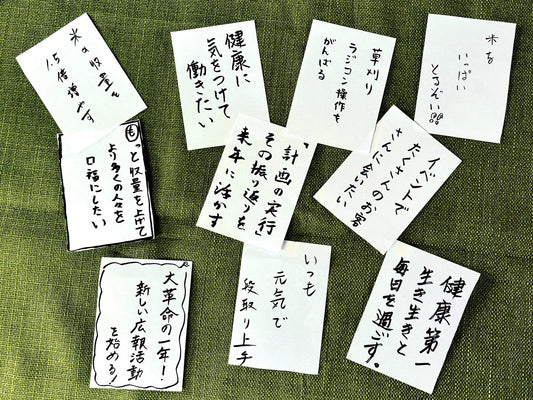 米の収量を
1.5倍増やす
健康に
気をつけて
働きたい
草刈り
ラジコン操作も
がんばる
いっぱい
とるぞい
もっと収量を上げて
より多くの人々を
口福にしたい
計画の実行
その振り返りを
来年に活かす
イベントで
たくさんのお客
さんに会いたい
大革命の一年!
新しい広報活動
を始める!
いつも
元気で
段取り上手
健康第一
生き生きと
毎日を過ごす。